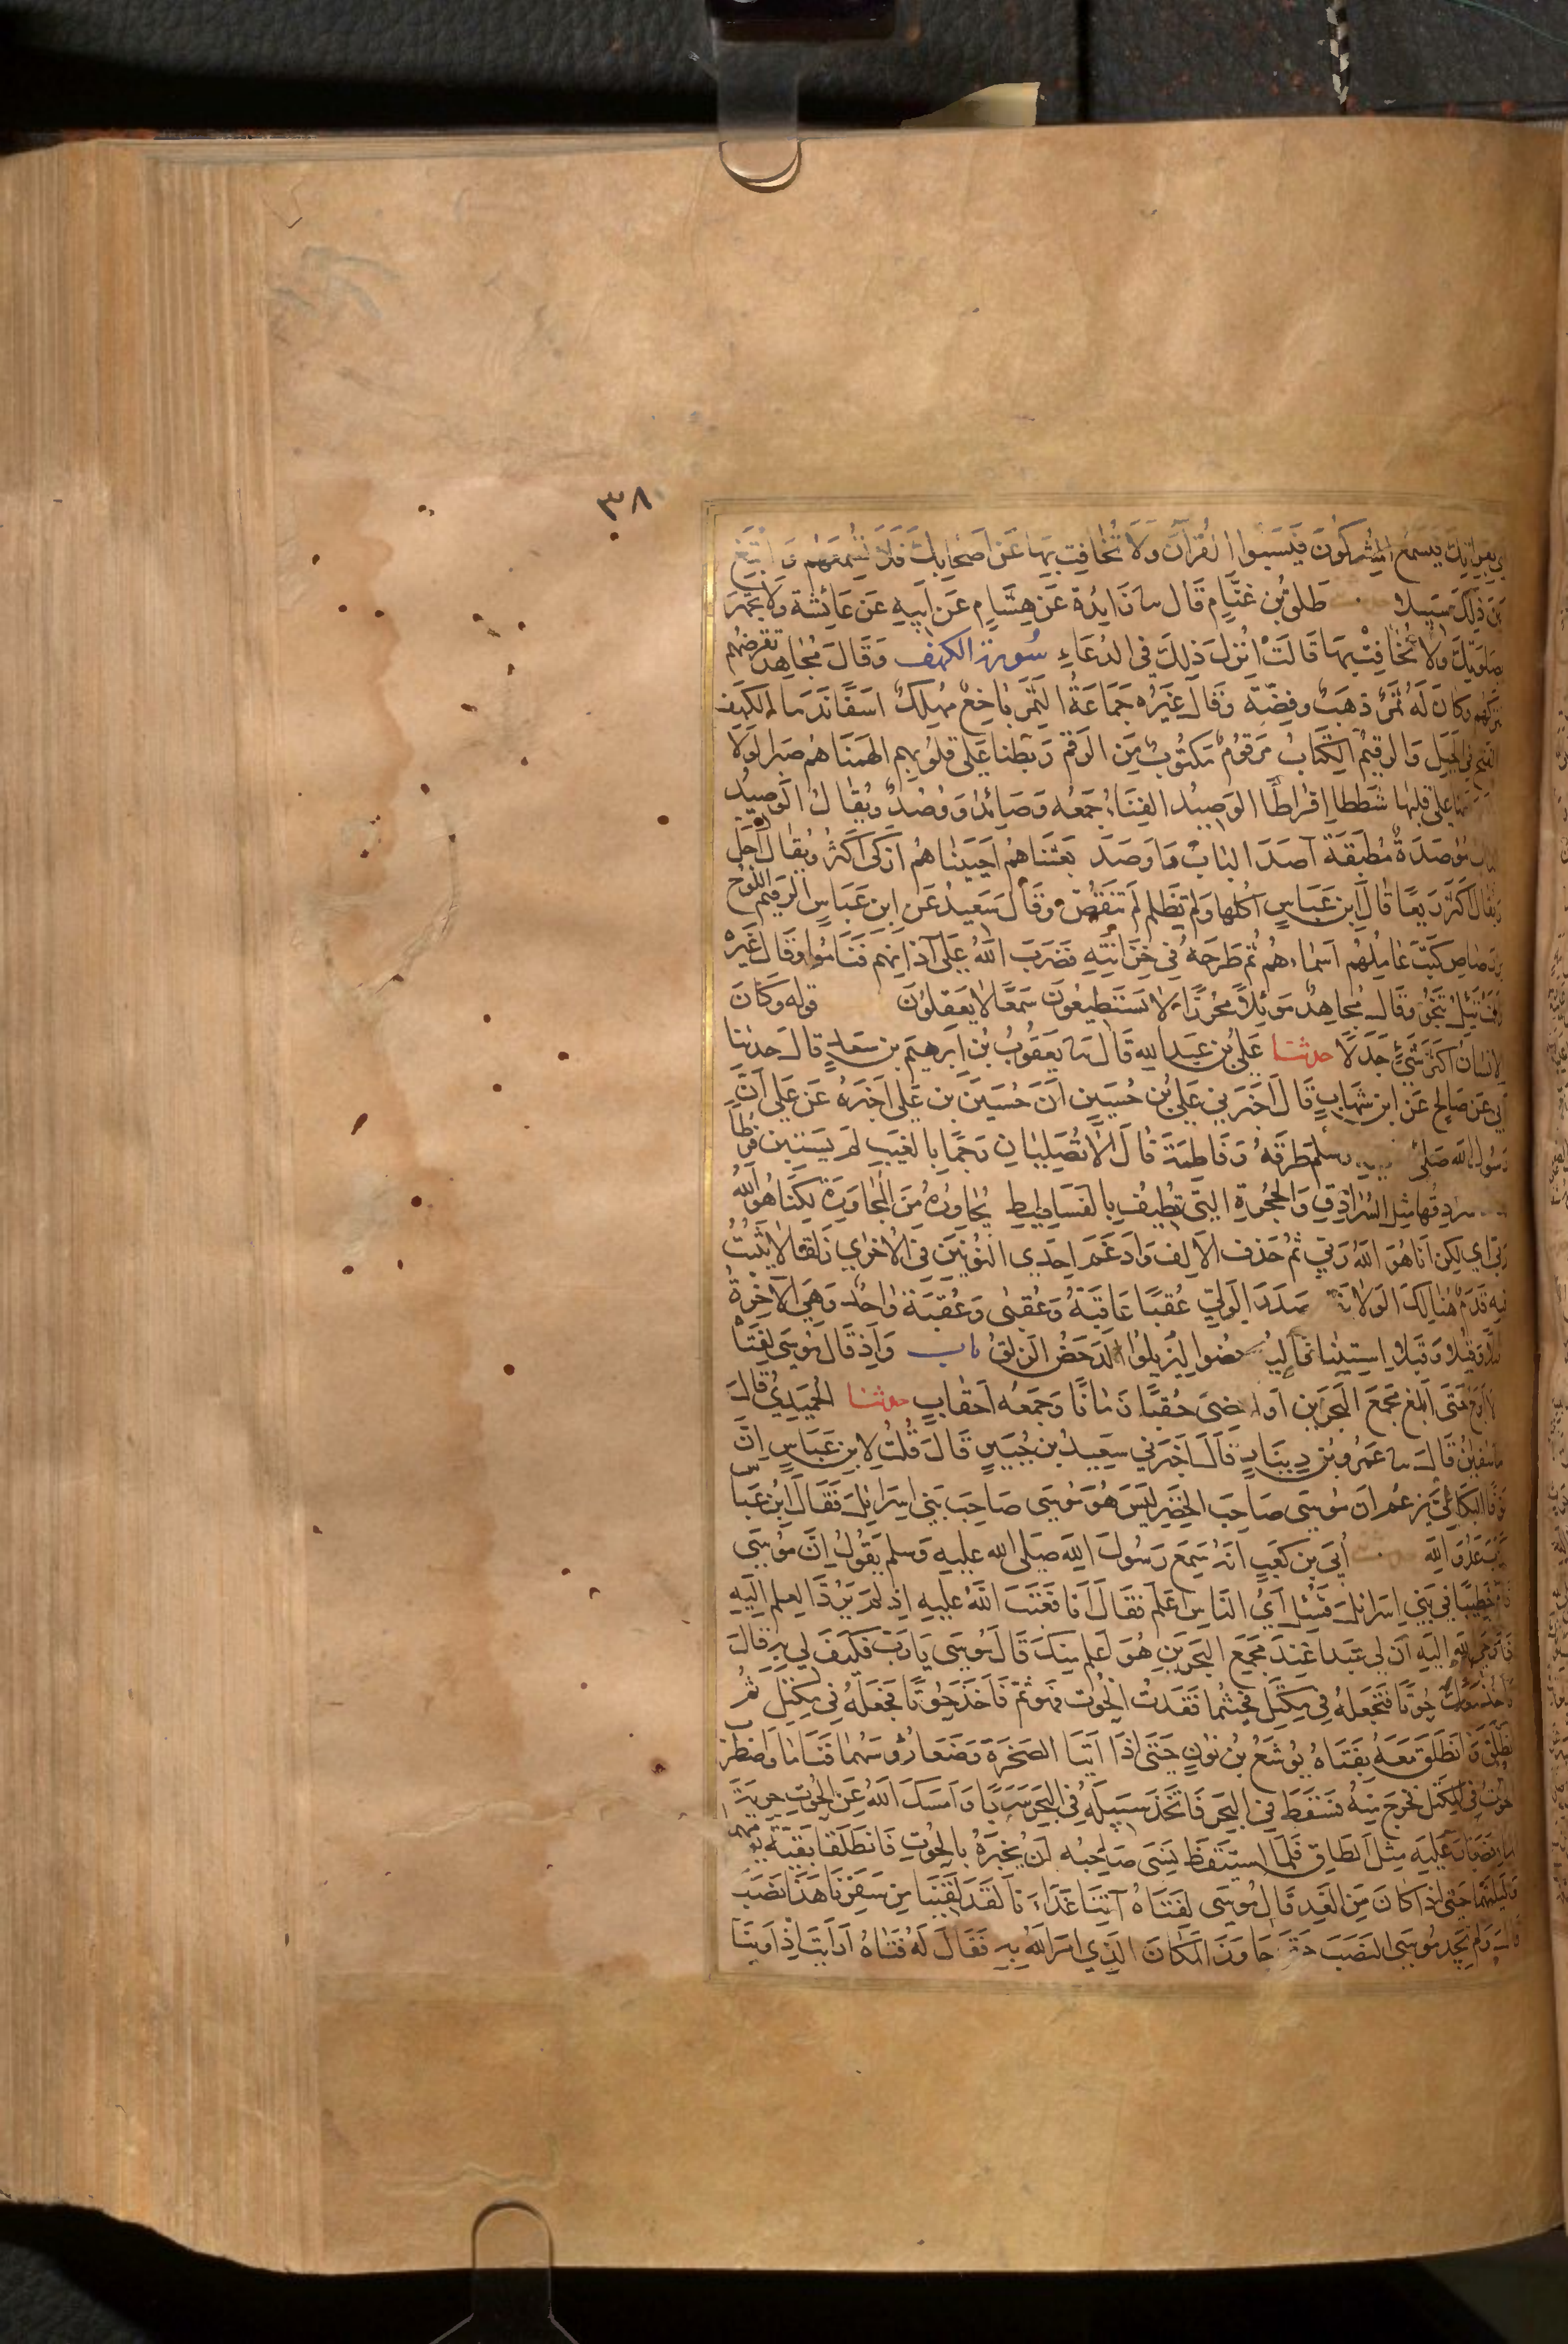 ٣٨
فيسمع المشركون فيسبوا القرآن ولا تخافت بها عن اصحابك فلا تسمعهم وابتغ
بين ذلك سبيلا طلق بن غنام قال سا زايدة عن هشام عن ابيه عن عائشة ولا تجهر
بصلوتك ولا تخافت بها قالت انزل ذلك في الدعاء سورة الكهف وقال مجاهد تقرضهم
تتركهم وكان له ثمر ذهب وفضة وقال غيره جماعة الثمر باخع مهلك اسفا ندما الكهف
الفتح في الجبل والرقيم الكتاب مرقوم مكتوب من الرقم ربطنا على قلوبهم الهمناهم صبرا لولا
على قلبها شططا افراطا الوصيد الفناء جمعه وصائد ووصد ويقال الوصيد
الباب موصدة مطبقة آصد الباب واوصد بعثناهم احييناهم ازكى اكثر ويقال احل
ويقال اكثر ريعا قال ابن عباس اكلها ولم تظلم لم تنقص وقال سعيد عن ابن عباس الرقيم اللوح
من رصاص كتب عاملهم اسماءهم ثم طرحه في خزانته فضرب الله على آذانهم فناموا وقال غيره
تئل تنجو وقال مجاهد موئلا محرزا لا يستطيعون سمعا لا يعقلون قوله وكان
الانسان اكثر شيء جدلا حدثنا علي بن عبد الله قال سا يعقوب بن ابرهيم بن سعد قال حدثنا
ابي عن صالح عن ابن شهاب قال اخبرني علي بن حسين ان حسين بن علي اخبره عن علي ان
رسول الله صلى وسلم طرقه وفاطمة قال الا تصليان رجما بالغيب لم يستبن فرطا
سرادقها مثل السرادق والحجرة التي تطيف بالفساطيط يحاوره من المحاورة لكنا هو الله
ربي اي لكن انا هو الله ربي ثم حذف الالف وادغم احدى النونين في الاخرى زلقا لا يثبت
فيه قدم هنالك الولاية مصدر الولي عقبا عاقبة وعقبى وعقبة واحد وهي الآخرة
قبلا وقبلا استينافا ليدحضوا ليزيلوا الدحض الزلق باب واذ قال موسى لفتاه
لا ابرح حتى ابلغ مجمع البحرين او امضي حقبا زمانا وجمعه احقاب حدثنا الحميدي قال
سا سفين قال سا عمرو بن دينار قال اخبرني سعيد بن جبير قال قلت لابن عباس ان
نوفا البكالي يزعم ان موسى صاحب الخضر ليس هو موسى صاحب بني اسرائل فقال ابن عباس
كذب عدو الله حدثني ابي بن كعب انه سمع رسول الله صلى الله عليه وسلم يقول ان موسى
قام خطيبا في بني اسرائل فسئل اي الناس اعلم فقال انا فعتب الله عليه اذ لم يرد العلم اليه
فاوحى الله اليه ان لي عبدا عند مجمع البحرين هو اعلم منك قال موسى يا رب فكيف لي به قال
تاخذ معك حوتا فتجعله في مكتل فحيثما فقدت الحوت فهو ثم فاخذ حوتا فجعله في مكتل ثم
انطلق وانطلق معه بفتاه يوشع بن نون حتى اذا اتيا الصخرة وضعا رؤوسهما فناما واضطرب
الحوت في المكتل فخرج منه فسقط في البحر فاتخذ سبيله في البحر سربا وامسك الله عن الحوت جرية
الماء فصار عليه مثل الطاق فلما استيقظ نسي صاحبه ان يخبره بالحوت فانطلقا بقية يومهما
وليلتهما حتى اذا كان من الغد قال موسى لفتاه آتنا غداءنا لقد لقينا من سفرنا هذا نصب
قال ولم يجد موسى النصب حتى جاوز المكان الذي امر الله به فقال له فتاه ارايت اذ اوينا